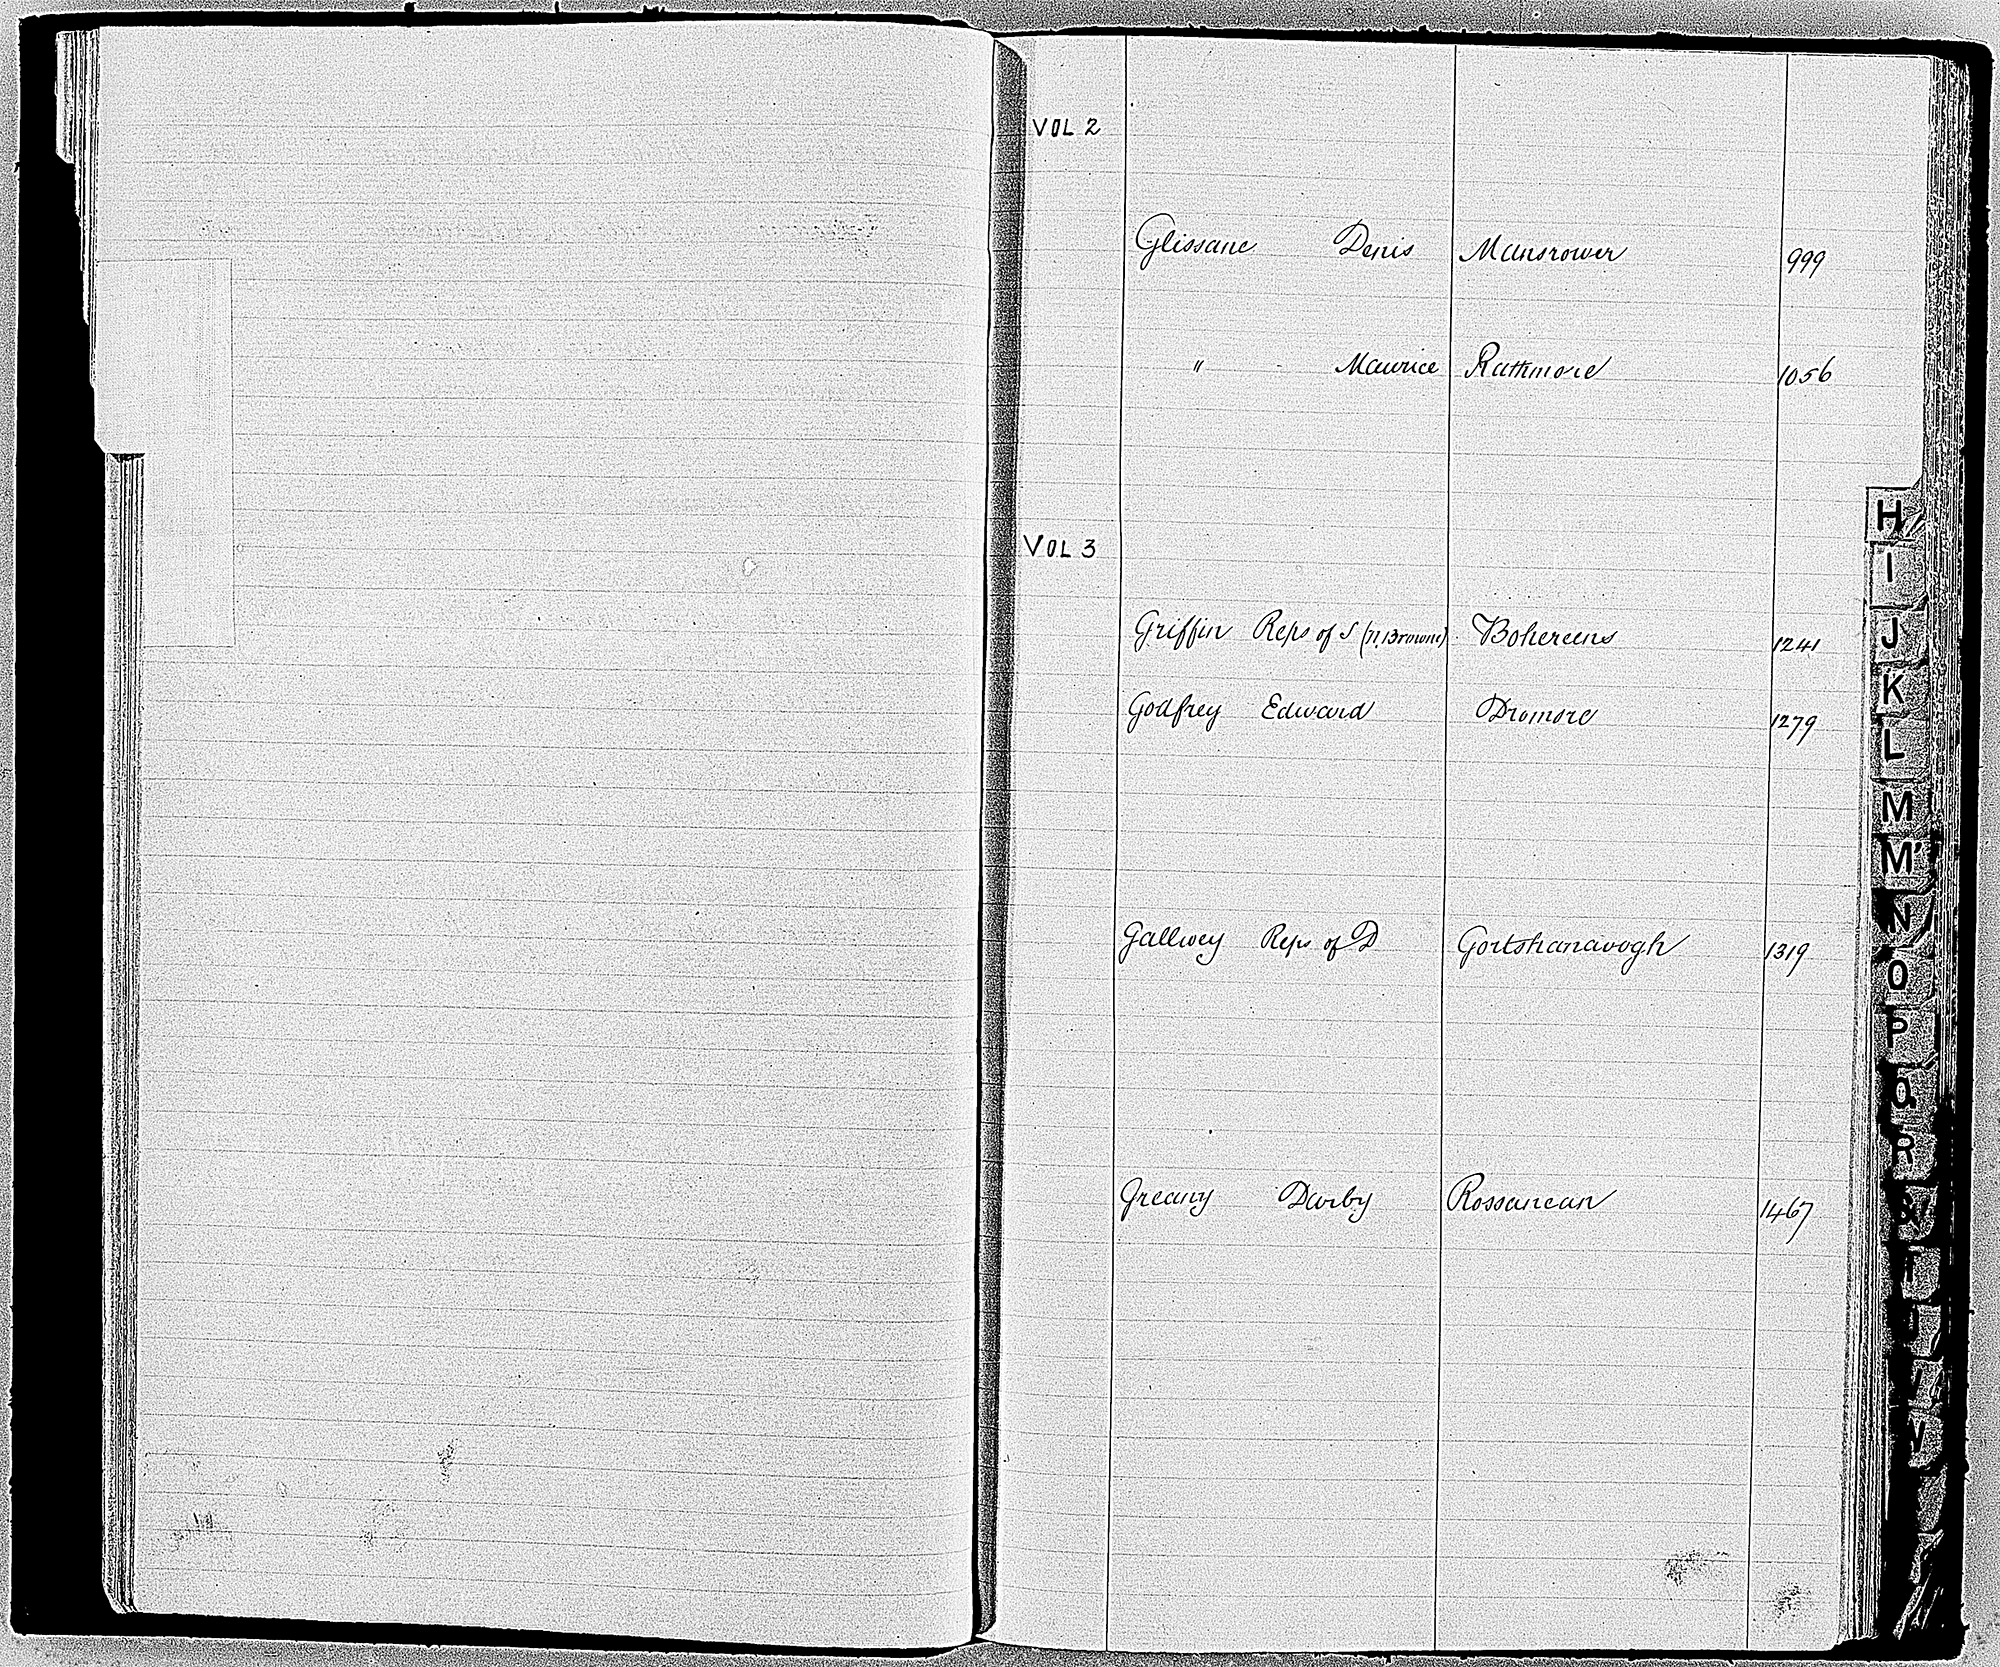 VOL 2
Glissane Denis Mansrower 999
" Maurice Rathmore 1056
VOL 3
Griffin Reps of S (N. Browne) Bohereens 1241
Godfrey Edward Dromore 1279
Gallwey Reps of D Gortshanavogh 1319
Greany Darby Rossanean 1467
H
I
J
K
L
M
M'
N
O
P
Q
R
S
T
U
V
W